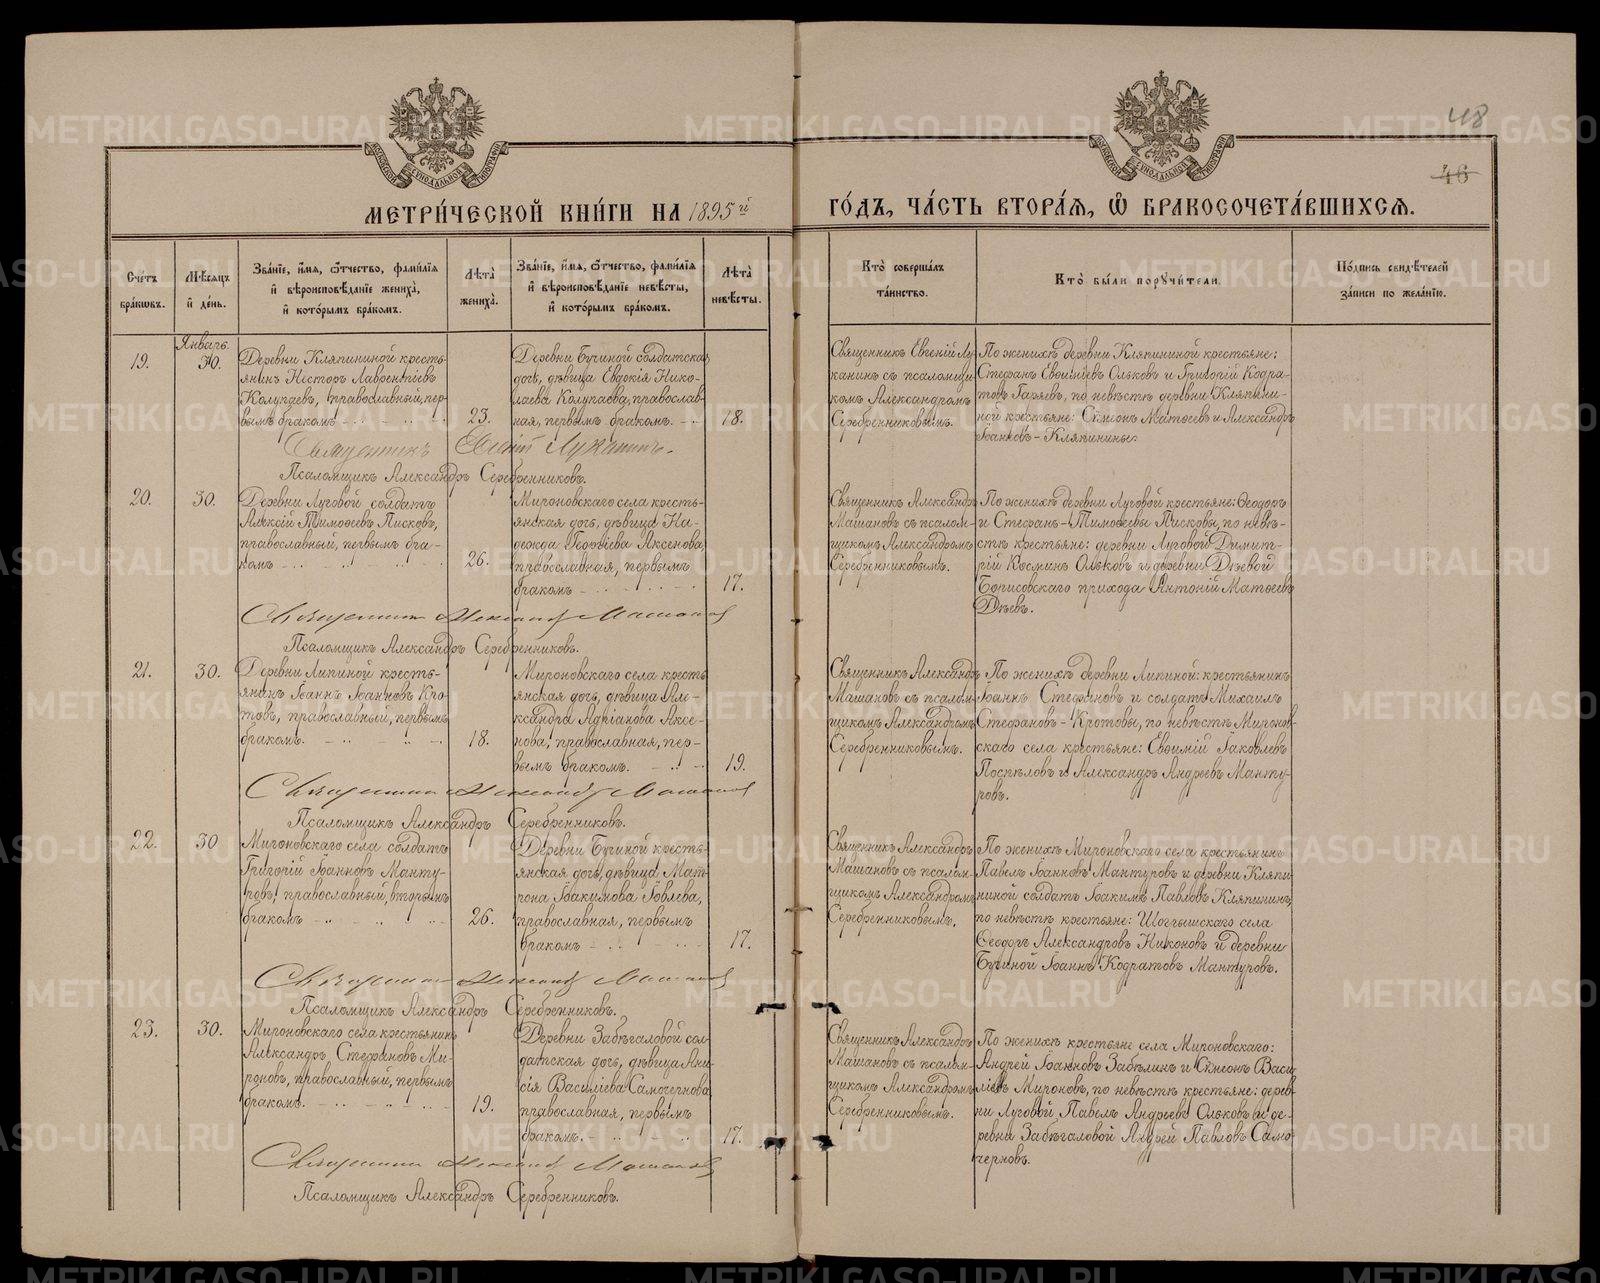 48
46
МЕТРИ́ЧЕСКОЙ КНИ́ГИ НА 1895й
ГО́ДЪ, ЧА́СТЬ ВТОРА́Я, Ѽ БРАКОСОЧЕТА́ВШИХСЯ.
Сче́тъ бра́ковъ.
Мѣ́сяцъ и́ де́нь.
Зва́нїе, и́мя, ѻ́тчество, фами́лїя
и́ вѣроисповѣ́данїе жениха̀,
и́ кото́рымъ бра́комъ.
Лѣ́та̀ жениха̀.
Зва́нїе, и́мя, ѻ́тчество, фами́лїя
и́ вѣроисповѣ́данїе невѣ́сты,
и́ кото́рымъ бра́комъ.
Лѣ́та̀ невѣ́сты.
Кто̀ соверша́лъ
та́инство.
Кто̀ бы́ли порꙋчи́тели.
По́дпись свидѣ́телей
за́писи по жела́нїю.
Январь.
19.
30.
Деревни Кляпининой кресть-
янинъ Несторъ Лаврентіевъ
Колупаевъ, православный, пер-
вымъ бракомъ
23.
Деревни Бучиной солдатская
дочь, дѣвица Евдокія Нико-
лаева Колукаева, православ-
ная, первымъ бракомъ.
18.
Священникъ Евгеній Лу-
канинъ съ псаломщи-
комъ Александромъ
Серебренниковымъ.
По женихѣ деревни Кляпининой крестьяне:
Стефанъ Евѳиміевъ Ольковъ и Григорій Кодра-
товъ Гаряевъ, по невѣстѣ деревни Кляпини-
ной крестьяне: Сѵмеонъ Матѳеевъ и Александръ
Іоанновъ - Кляпинины.
Священникъ Евгеній Луканинъ.
Псаломщикъ Александръ Серебренниковъ.
20.
30.
Деревни Луговой солдатъ
Алексій Тимоѳеевъ Писковъ,
православный, первымъ бра-
комъ
26.
Мироновскаго села кресть-
янская дочь, дѣвица На-
дежда Георгіева Аксенова,
православная, первымъ
бракомъ
17.
Священникъ Александръ
Машановъ съ псалом-
щикомъ Александромъ
Серебренниковымъ.
По женихѣ деревни Луговой крестьяне: Ѳеодоръ
и Стефанъ - Тимоѳеевы Писковы, по невѣ-
стѣ крестьяне: деревни Луговой Димит-
рій Косминъ Ольковъ и деревни Дѣевой
Борисовскаго прихода Антоній Матѳеевъ
Дѣевъ.
Священникъ Александръ Машановъ
Псаломщикъ Александръ Серебренниковъ.
21.
30.
Деревни Липиной кресть-
янинъ Іоаннъ Іоанновъ Кро-
товъ, православный, первымъ
бракомъ.
18.
Мироновскаго села кресть-
янская дочь, дѣвица Але-
ксандра Адріанова Аксе-
нова, православная, пер-
вымъ бракомъ.
19.
Священникъ Александръ
Машановъ съ псалом-
щикомъ Александромъ
Серебренниковымъ.
По женихѣ деревни Липиной: крестьянинъ
Іоаннъ Стефановъ и солдатъ Михаилъ
Стефановъ - Кротовы, по невѣстѣ Миронов-
скаго села крестьяне: Евѳимій Іаковлевъ
Поспѣловъ и Александръ Андреевъ Манту-
ровъ.
Священникъ Александръ Машановъ
Псаломщикъ Александръ Серебренниковъ.
22.
30
Мироновскаго села солдатъ
Григорій Іоанновъ Манту-
ровъ, православный, вторымъ
бракомъ
26.
Деревни Бучиной кресть-
янская дочь, дѣвица Мат-
рона Іоакимова Іовлева,
православная, первымъ
бракомъ
17.
Священникъ Александръ
Машановъ съ псалом-
щикомъ Александромъ
Серебренниковымъ.
По женихѣ Мироновскаго села крестьянинъ
Павелъ Іоанновъ Мантуровъ и деревни Кляпи-
ниной солдатъ Іоакимъ Павловъ Кляпининъ,
по невѣстѣ крестьяне: Шогрышскаго села
Ѳеодоръ Александровъ Никоновъ и деревни
Бучиной Іоаннъ Кодратовъ Мантуровъ.
Священникъ Александръ Машановъ
Псаломщикъ Александръ Серебренниковъ.
23.
30.
Мироновскаго села крестьянинъ
Александръ Стефановъ Ми-
роновъ, православный, первымъ
бракомъ.
19.
Деревни Забѣгаловой сол-
датская дочь, дѣвица Ани-
сія Василіева Самочернова,
православная, первымъ
бракомъ.
17.
Священникъ Александръ
Машановъ съ псалом-
щикомъ Александромъ
Серебренниковымъ.
По женихѣ крестьяне села Мироновскаго:
Андрей Іоанновъ Забѣлинъ и Сѵмеонъ Васи-
ліевъ Мироновъ, по невѣстѣ крестьяне: дерев-
ни Луговой Павелъ Андреевъ Ольковъ и де-
ревни Забѣгаловой Андрей Павловъ Само-
черновъ.
Священникъ Александръ Машановъ
Псаломщикъ Александръ Серебренниковъ.